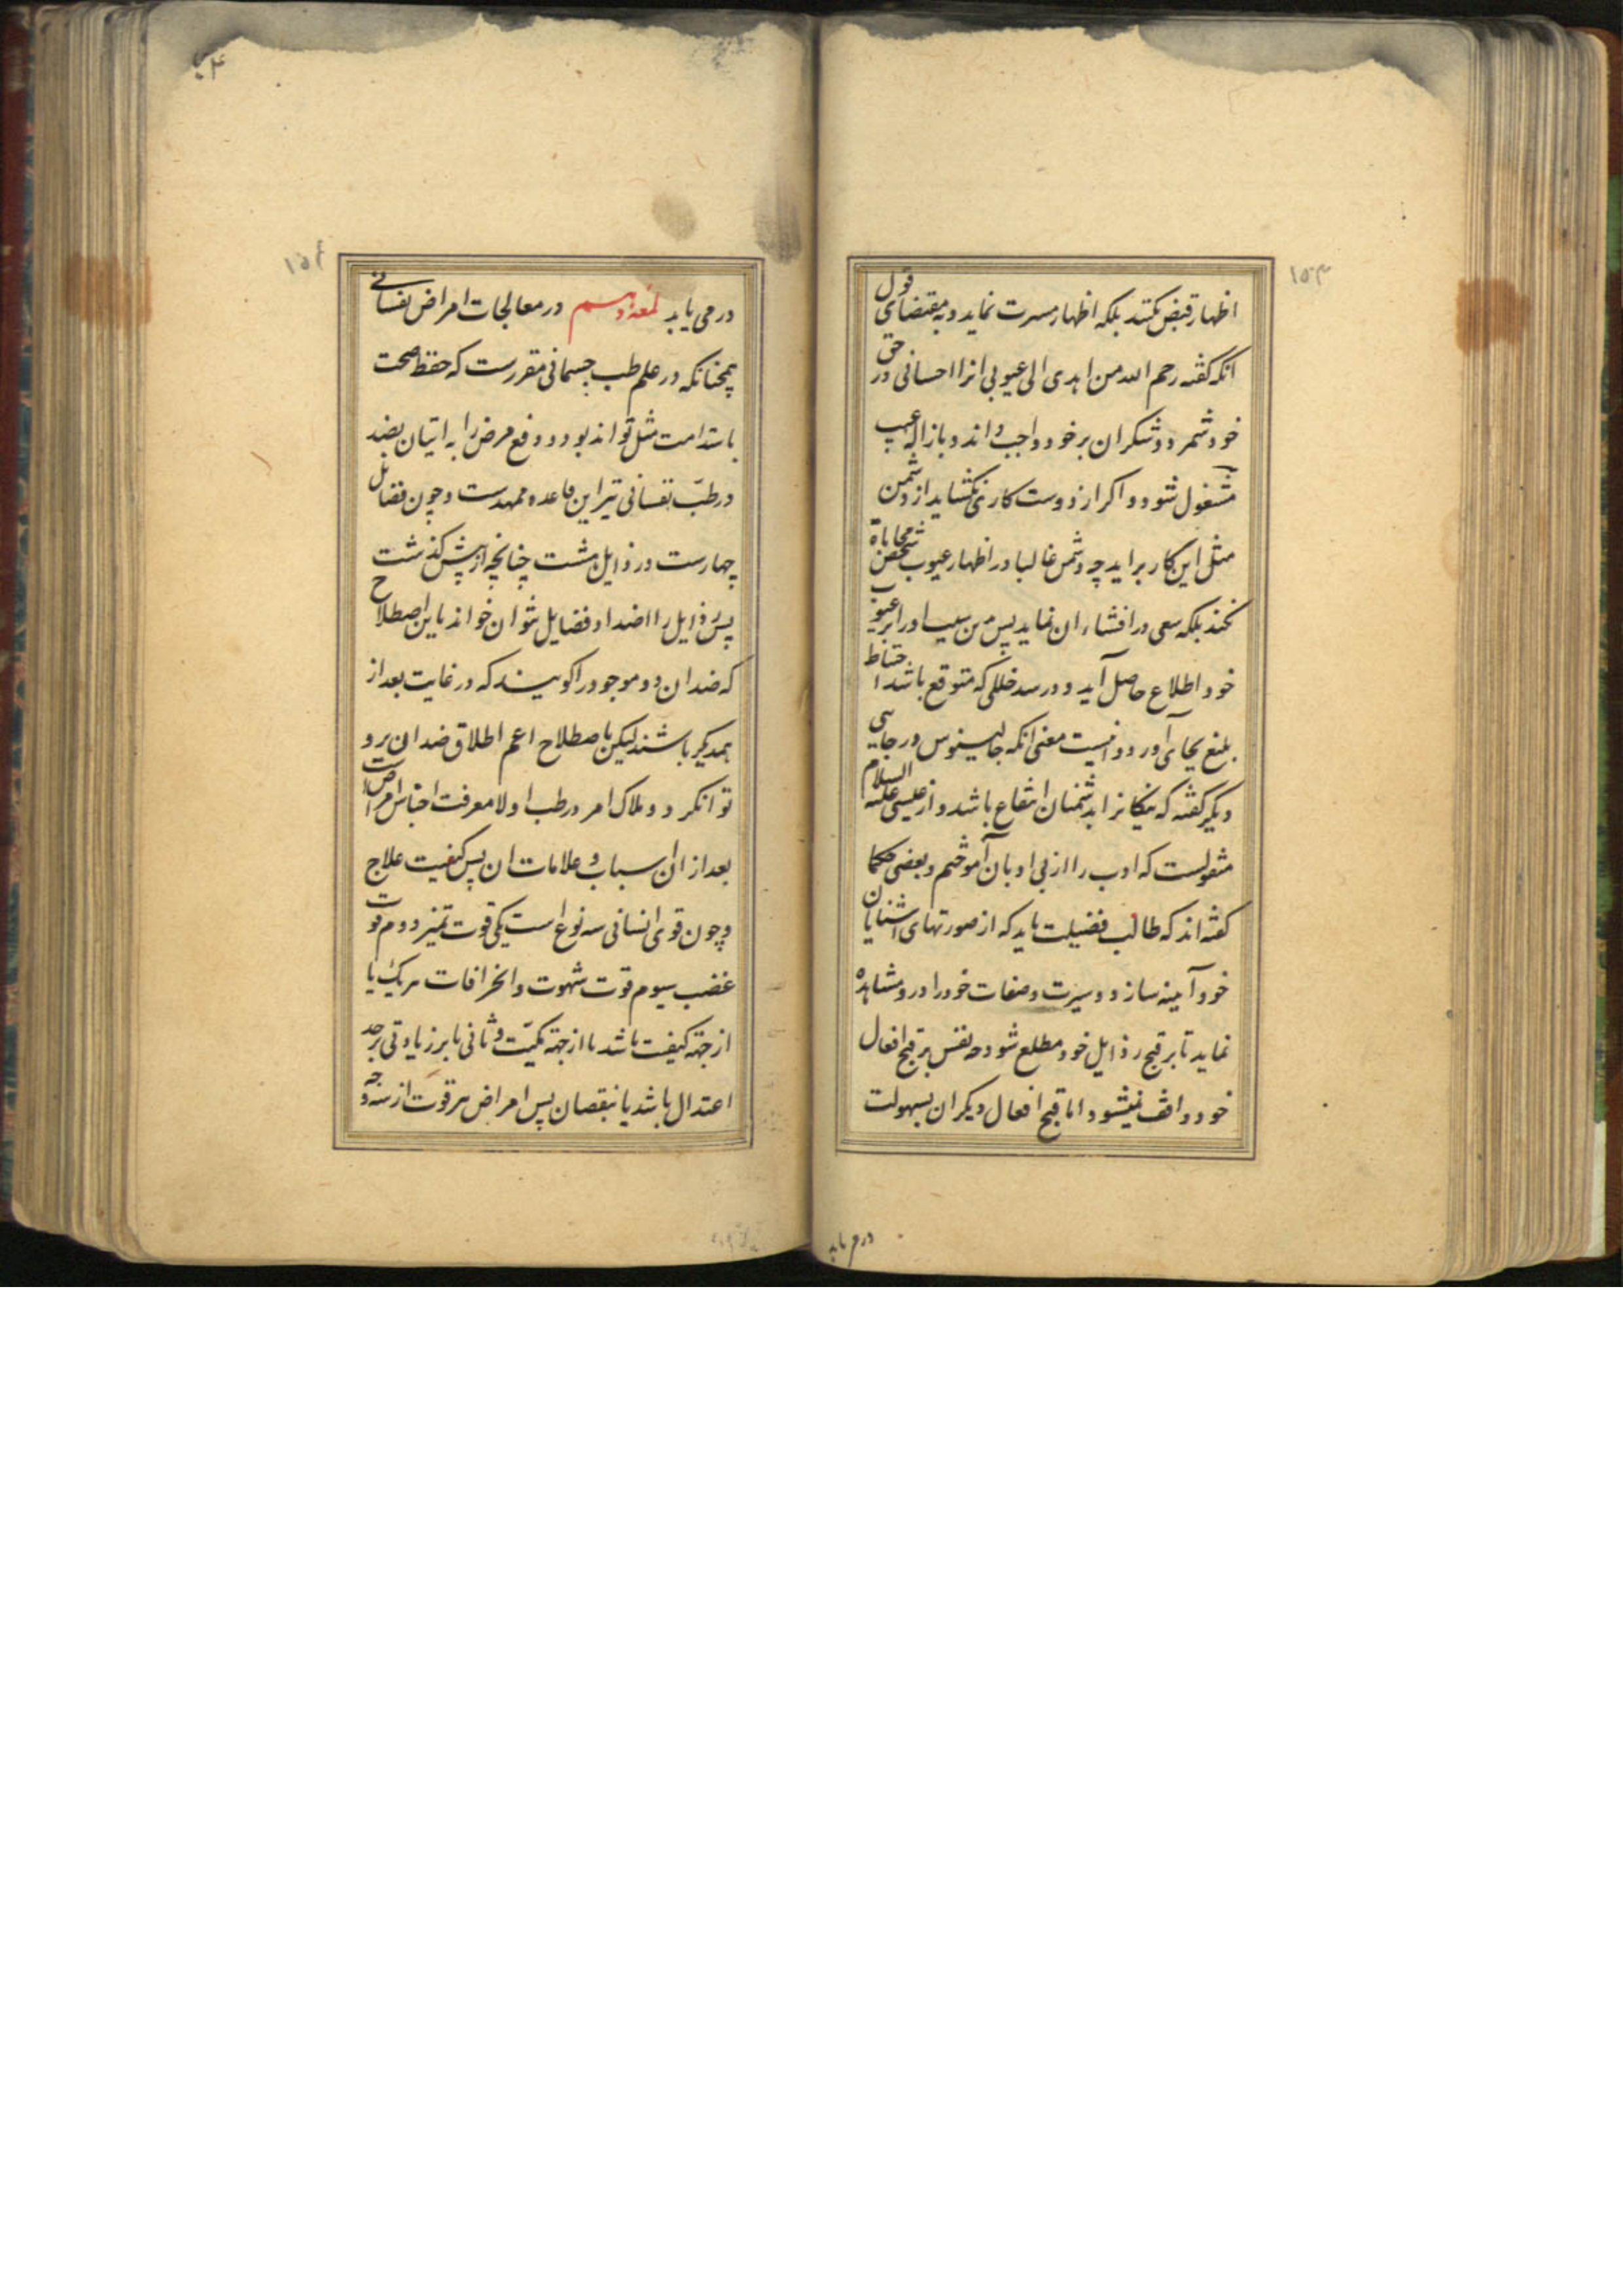 ١٥٣
اظهار قبض نکند بلکه اظهار مسرت نماید و بمقتضای قول
انکه کفته رحم الله من اهدی الی عیوبی انرا احسانی در حق
خود شمرد و شکر ان بر خود واجب داند و بازاله عیب
مشغول شود و اکر از دوست کاری نکشاید از دشمن
مثل این کار براید چه دشمن غالبا در اظهار عیوب شخص محاباة
نکند بلکه سعی در افشاء ان نماید پس من سبب او را بر عیوب
خود اطلاع حاصل آید و در سد خللی که متوقع باشد احتیاط
بلیغ بجای آورد و اینست معنی انکه جالینوس در جایی
دیکر کفته که نیکانرا بدشمنان انتفاع باشد و از عیسی علیه السلام
منقولست که ادب را از بی ادبان آموختم و بعضی حکما
کفته اند که طالب فضیلت باید که از صورتهای اشنایان
خود آینه سازد و سیرت و صفات خود را در و مشاهده
نماید تا بر قبح رذایل خود مطلع شود چه نفس بر قبح افعال
خود واقف نمیشود اما قبح افعال دیکران بسهولت
در می یابد
١٥٤
در می یابد لمعه دهم در معالجات امراض نفسانی
همچنانکه در علم طب جسمانی مقررست که حفظ صحت
باستدامت مثل تواند بود و دفع مرض را به اتیان بضد
در طبّ نفسانی نیز این قاعده ممهدست و چون فضایل
چهارست و رذایل هشت چنانچه از پیش کذشت
پس رذایل را اضداد فضایل نتوان خواند باین اصطلاح
که ضدان دو موجود را کویند که در غایت بعد از
همدیکر باشند لیکن باصطلاح اعم اطلاق ضدان برو
توان کرد و ملاک امر در طب اولا معرفت اجناس امراضست
بعد از ان اسباب و علامات ان پس کیفیت علاج
و چون قوی انسانی سه نوع است یکی قوت تمیز دوم قوت
غضب سیوم قوت شهوت و انحرافات هریک یا
از جهة کیفیت باشد یا از جهة کمیّت و ثانی یا بر زیادتی بر حد
اعتدال باشد یا نقصان پس امراض هر قوت از سه وجه